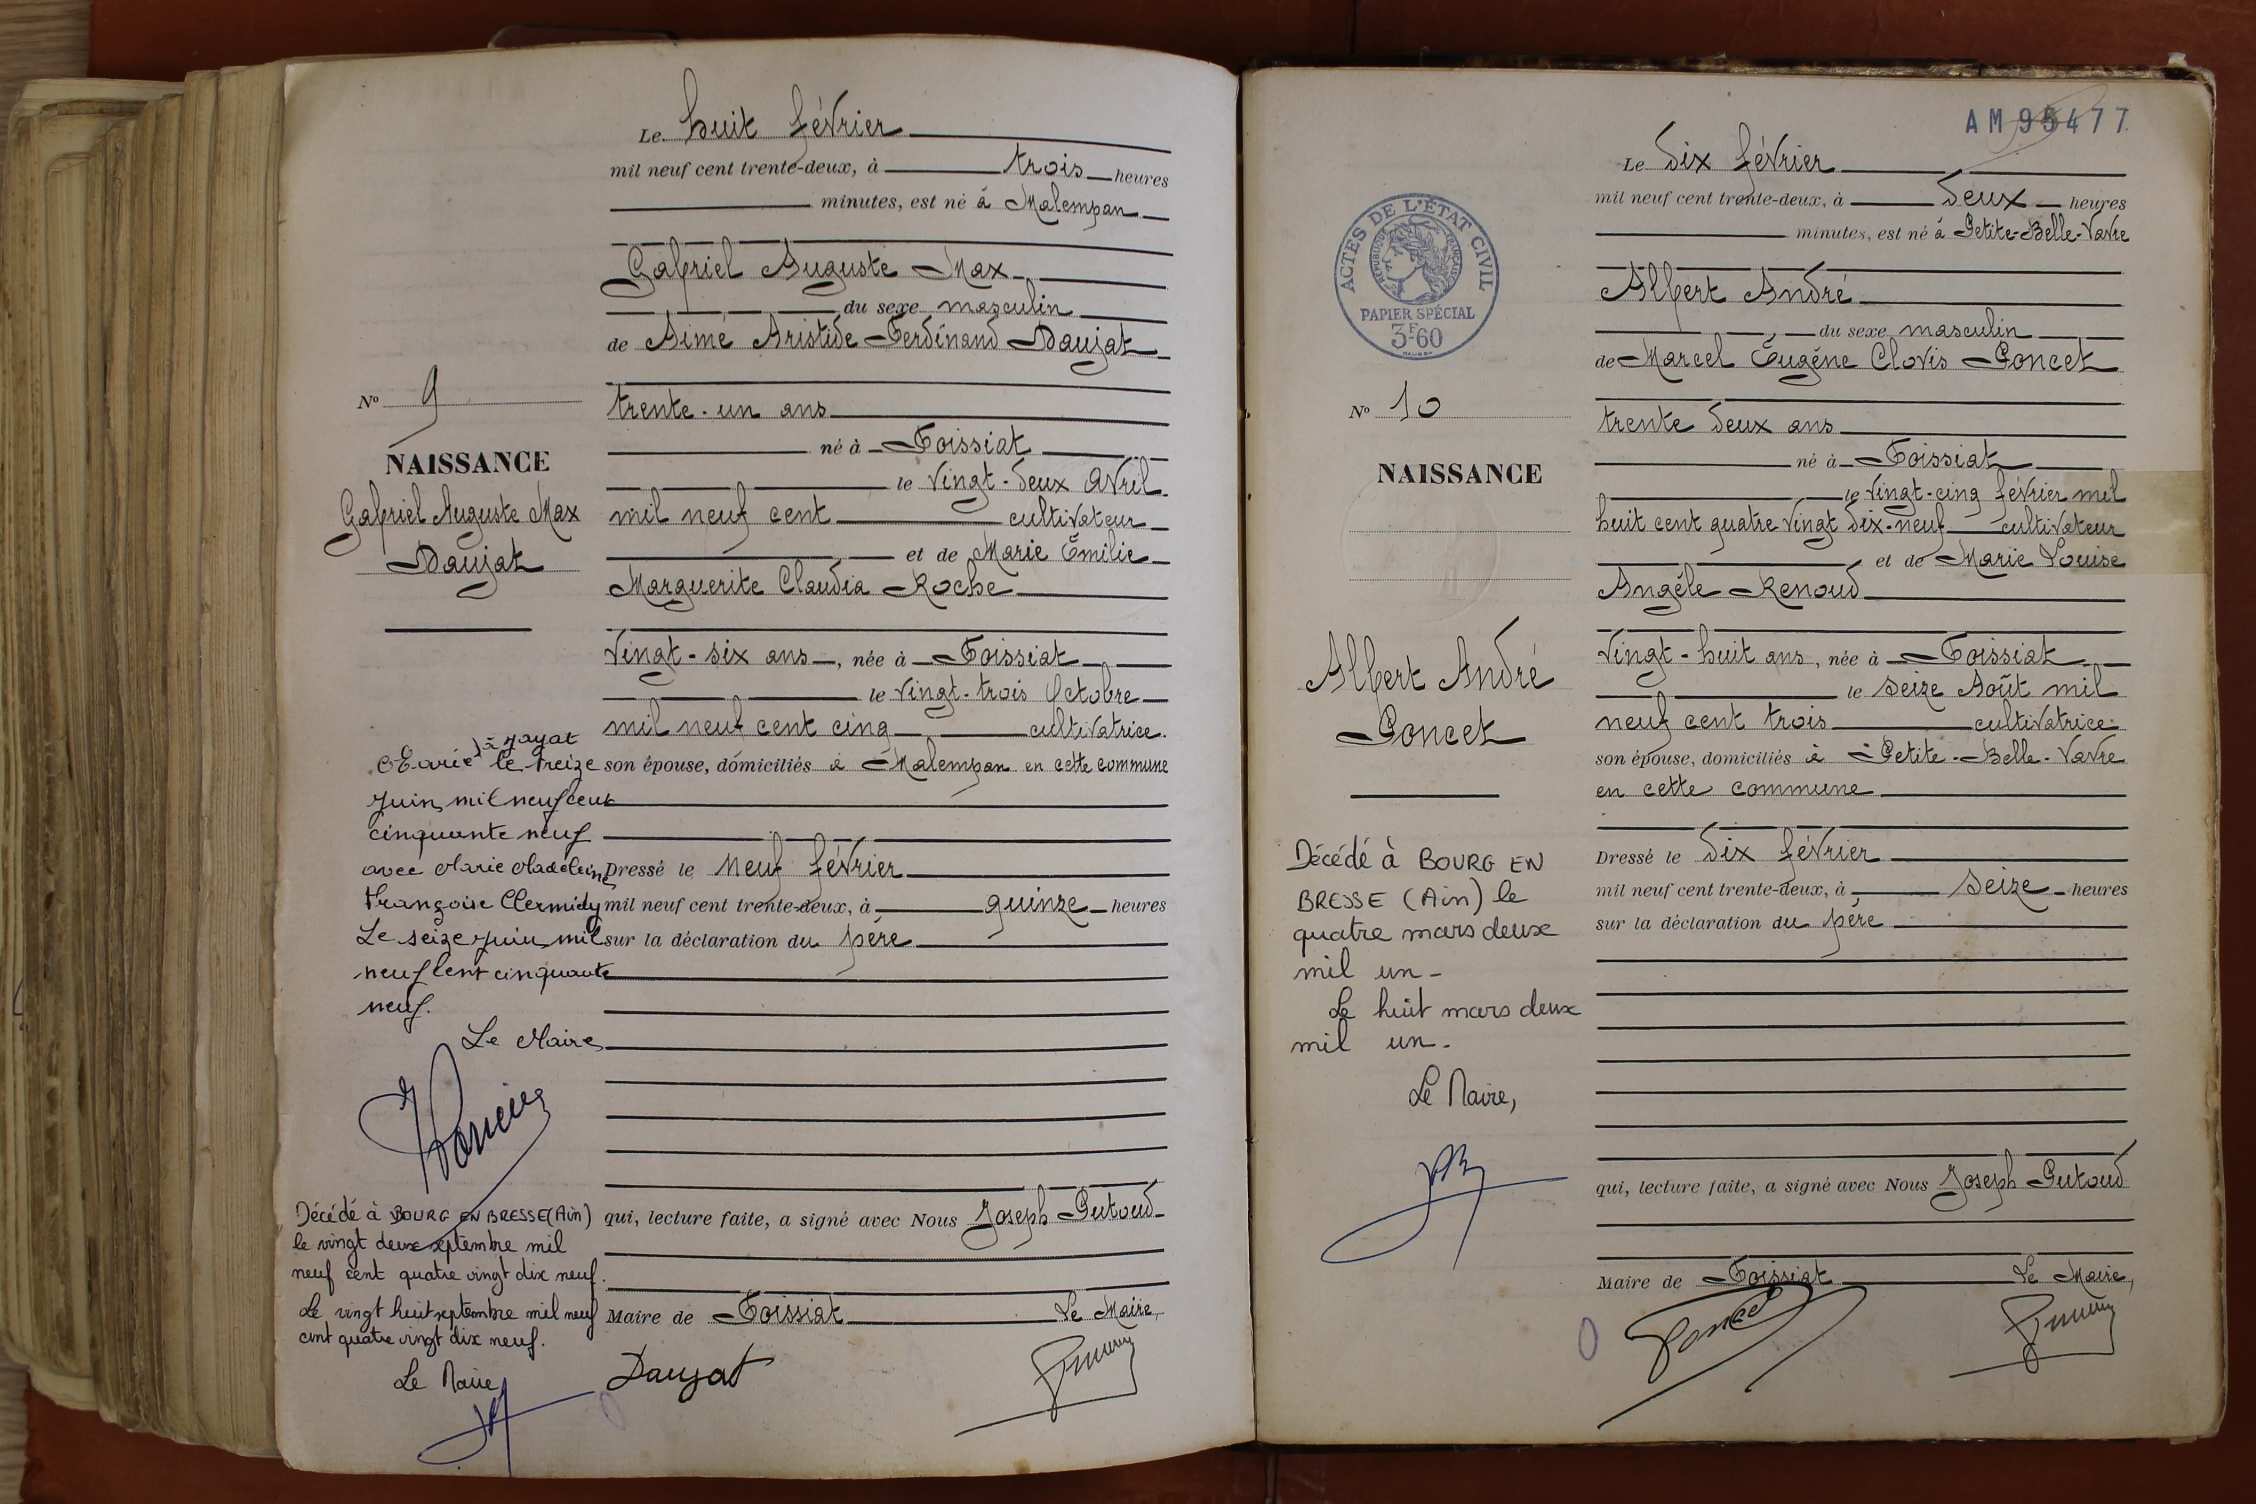 Le huit février
mil neuf cent trente-deux, à trois heures
minutes, est né à Malempan
Gabriel Auguste Max
du sexe masculin
de Aimé Aristide Ferdinand Daujat
trente-un ans
né à Foissiat
le vingt-deux avril
mil neuf cent cultivateur
et de Marie Émilie
Marguerite Claudia Roche
Vingt-six ans, née à Foissiat
le vingt-trois Octobre
mil neuf cent cinq cultivatrice
son épouse, domiciliés à Malempan en cette commune
Dressé le neuf février
mil neuf cent trente-deux, à quinze heures
sur la déclaration du père
qui, lecture faite, a signé avec Nous Joseph Putoud
Maire de Foissiat Le Maire,
Daujat
No 9
NAISSANCE
Gabriel Auguste Max
Daujat
Marié à Jayat
le treize
juin mil neuf cent
cinquante neuf
avec Marie Madeleine
Françoise Clermidy
Le seize juin mil
neuf cent cinquante
neuf.
Le Maire
Décédé à BOURG EN BRESSE (Ain)
le vingt deux septembre mil
neuf cent quatre vingt dix neuf.
Le vingt huit septembre mil neuf
cent quatre vingt dix neuf.
Le Maire
AM 95477
Le dix février
mil neuf cent trente-deux, à deux heures
minutes, est né à Petite-Belle-Vavre
Albert André
du sexe masculin
de Marcel Eugène Clovis Poncet
trente deux ans
né à Foissiat
le vingt-cinq février mil
huit cent quatre vingt dix-neuf cultivateur
et de Marie Louise
Angèle Renoud
Vingt-huit ans, née à Foissiat
le seize Août mil
neuf cent trois cultivatrice
son épouse, domiciliés à Petite-Belle-Vavre
en cette commune
Dressé le dix février
mil neuf cent trente-deux, à seize heures
sur la déclaration du père
qui, lecture faite, a signé avec Nous Joseph Putoud
Maire de Foissiat Le Maire,
Poncet
ACTES DE L'ÉTAT CIVIL
RÉPUBLIQUE FRANÇAISE
PAPIER SPÉCIAL
3F60
No 10
NAISSANCE
Albert André
Poncet
Décédé à BOURG EN
BRESSE (Ain) le
quatre mars deux
mil un-
Le huit mars deux
mil un-
Le Maire,